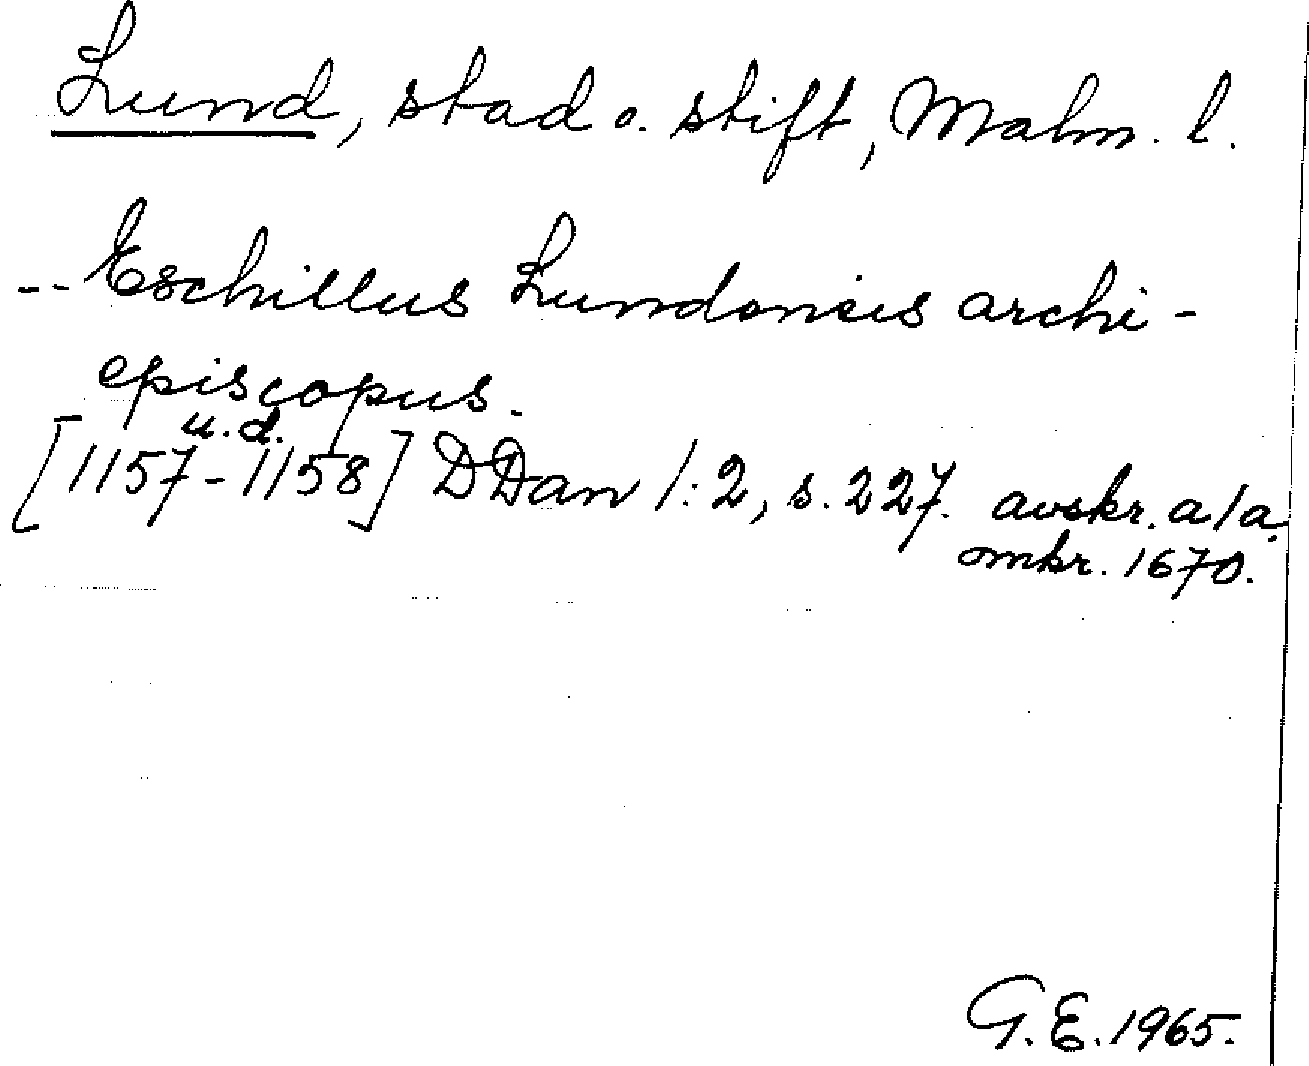 Lund, stad o. stift, Malm. l.
-- Eschillus Lundonsis archi-
episcopus.
u. d.
[1157-1158] DDan 1:2, s. 227. avskr. a/a.
omkr. 1670.
G.E. 1965.